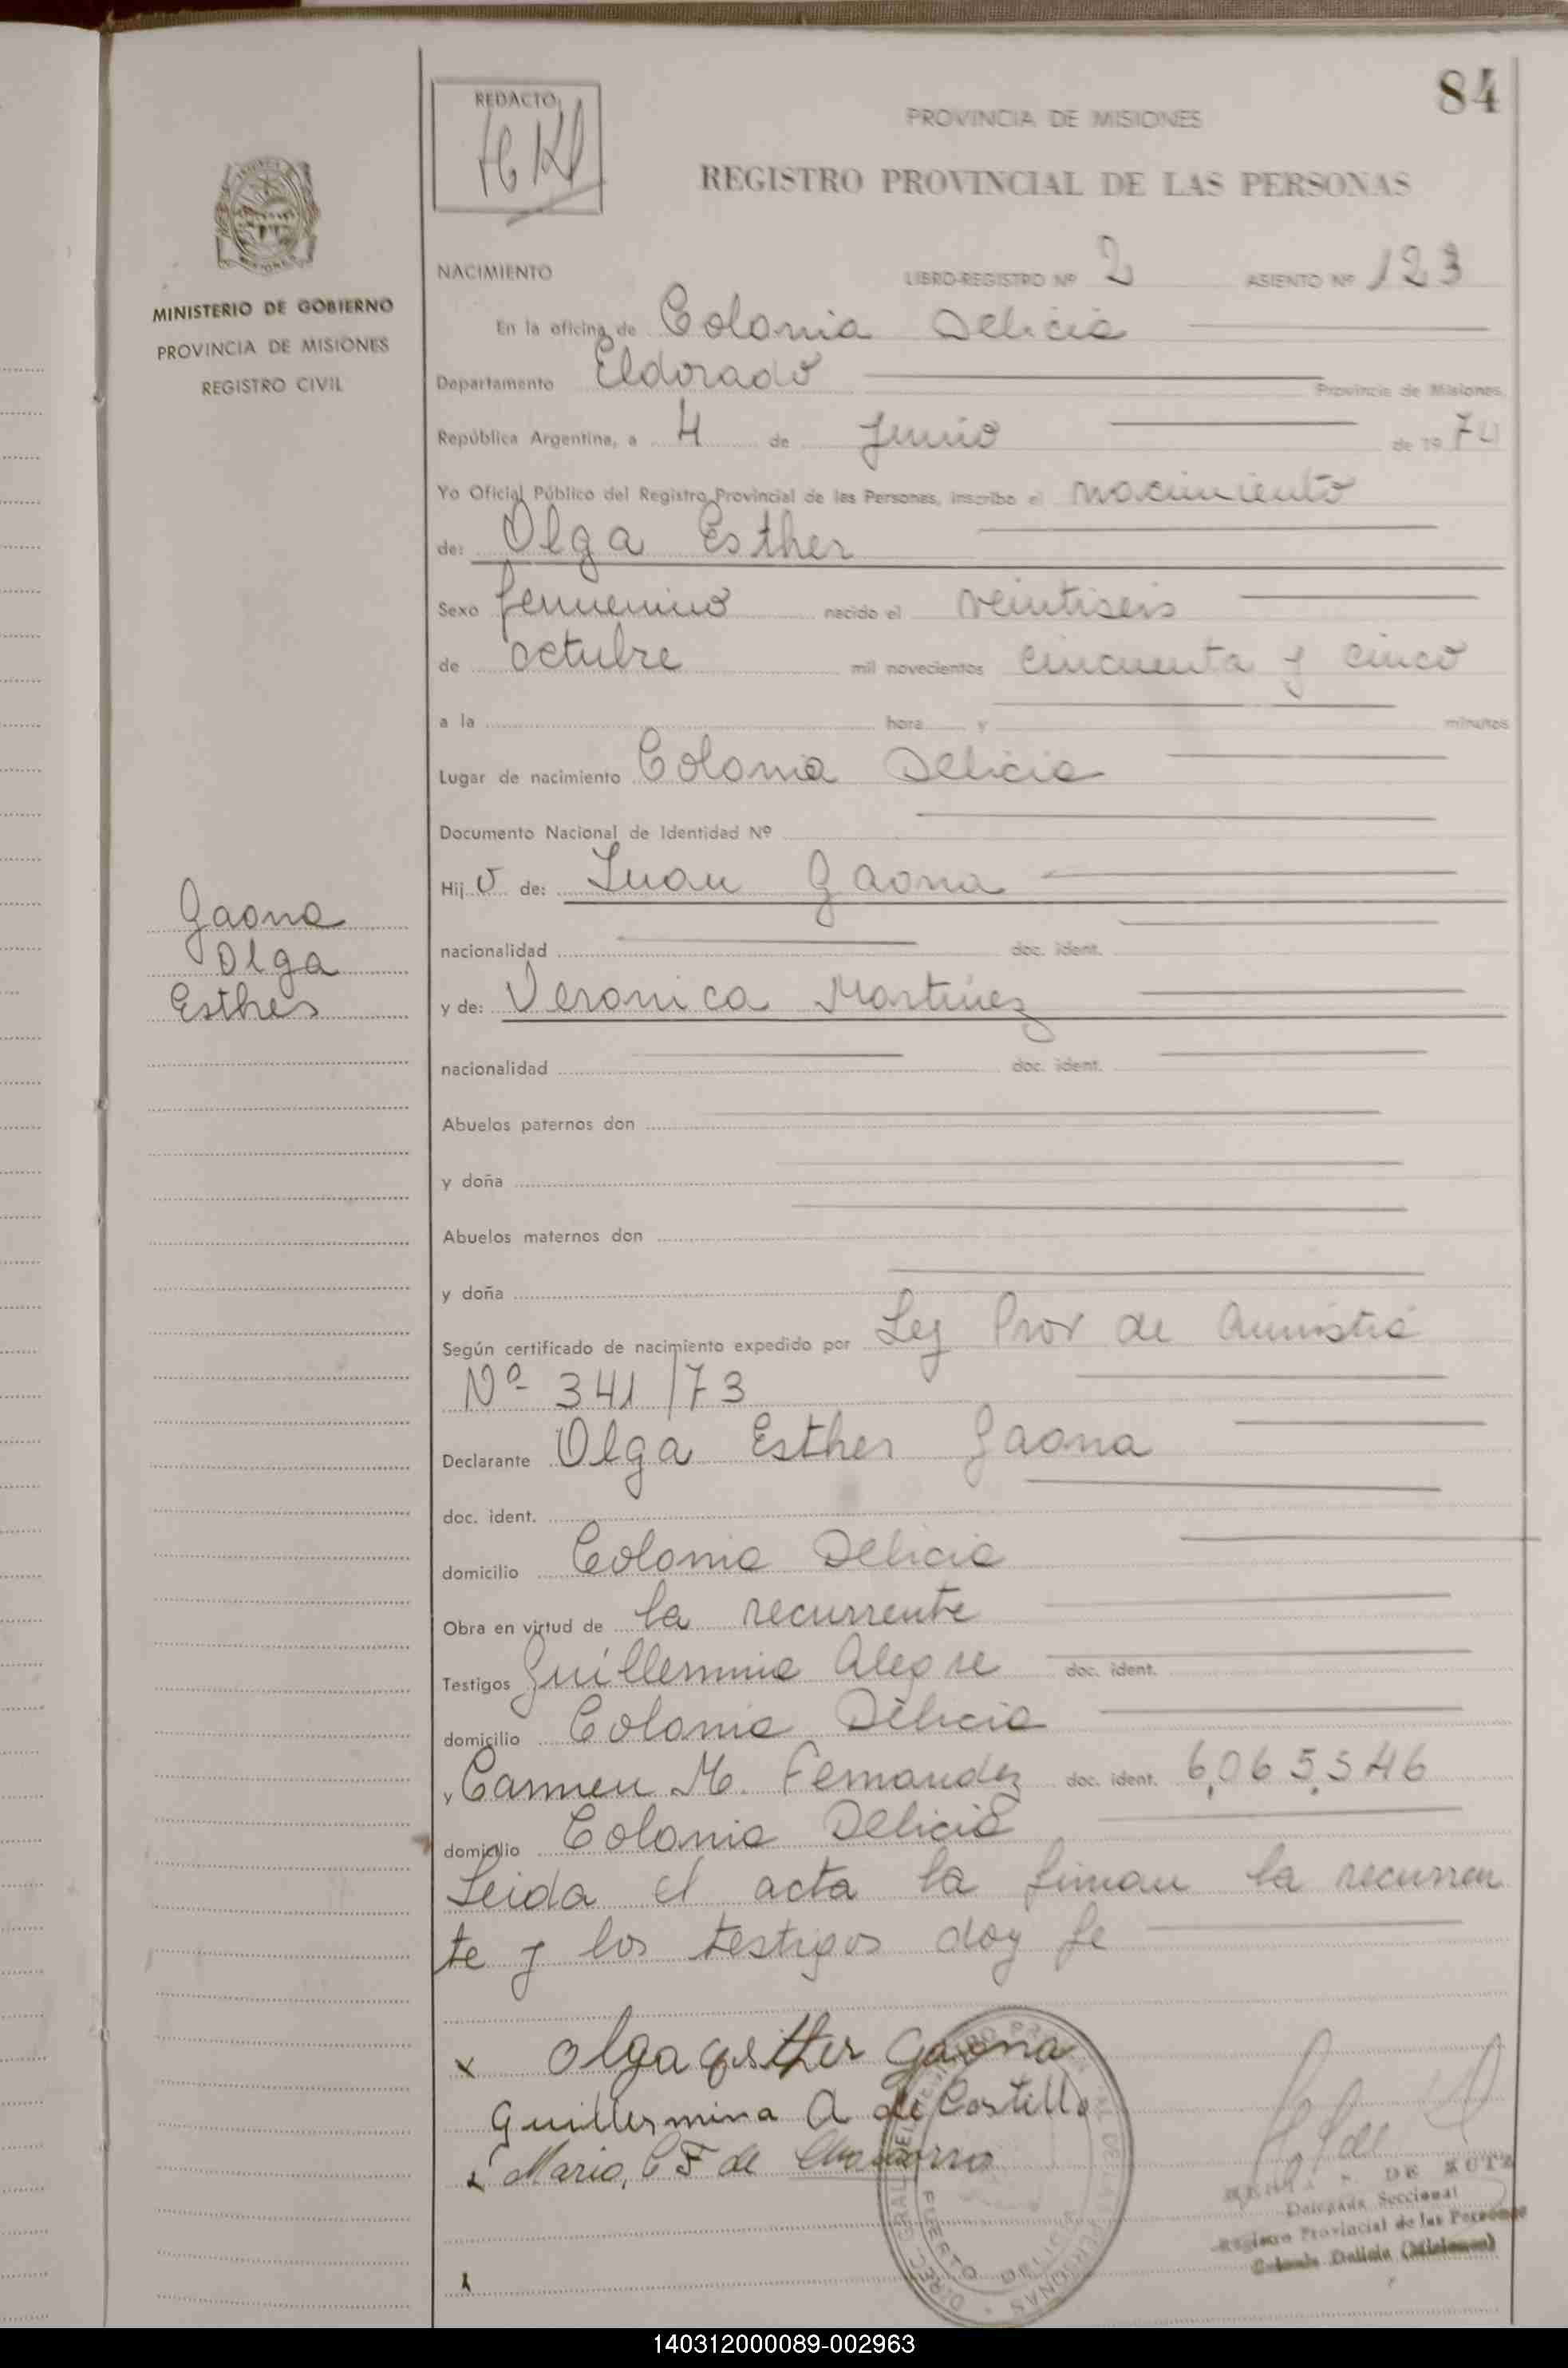 84
REDACTO
PROVINCIA DE MISIONES
REGISTRO PROVINCIAL DE LAS PERSONAS
MINISTERIO DE GOBIERNO
PROVINCIA DE MISIONES
REGISTRO CIVIL
Gaona
Olga
Esther
NACIMIENTO LIBRO-REGISTRO Nº 2 ASIENTO Nº 123
En la oficina de Colonia Delicia
Departamento Eldorado Provincia de Misiones,
República Argentina, a 4 de Junio de 1974
Yo Oficial Público del Registro Provincial de las Personas, inscribo el nacimiento
de: Olga Esther
Sexo femenino nacido el veintiseis
de octubre mil novecientos cincuenta y cinco
a la hora y minutos
Lugar de nacimiento Colonia Delicia
Documento Nacional de Identidad Nº
Hij o de: Juan Gaona
nacionalidad doc. ident.
y de: Veronica Martinez
nacionalidad doc. ident.
Abuelos paternos don
y doña
Abuelos maternos don
y doña
Según certificado de nacimiento expedido por Ley Prov de Amnistia
Nº 341/73
Declarante Olga Esther Gaona
doc. ident.
domicilio Colonia Delicia
Obra en virtud de la recurrente
Testigos Guillermina Alegre doc. ident.
domicilio Colonia Delicia
y Carmen M. Fernandez doc. ident. 6.065.546
domicilio Colonia Delicia
Leida el acta la firman la recurren
te y los testigos doy fe
x Olga Esther Gaona
Guillermina A de Castillo
Maria, C F de
DE KUTZ
Delegada Seccional
Registro Provincial de las Personas
Colonia Delicia (Misiones)
PUERTO DELICIA
140312000089-002963